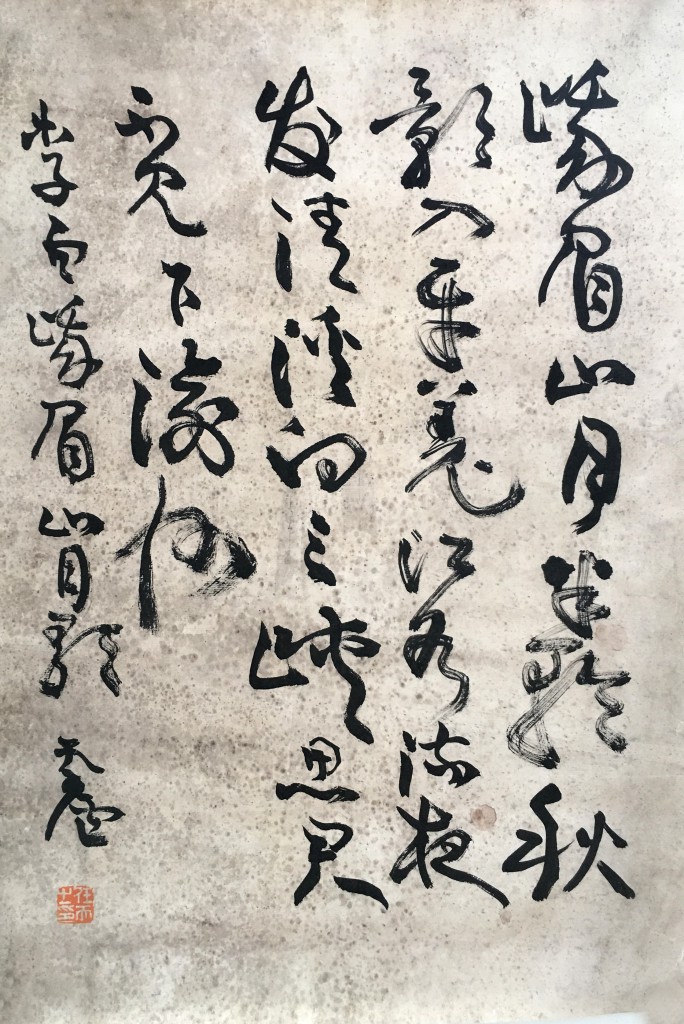 峨眉山月半輪秋
影入平羌江水流夜
发清溪向三峽思君
不见下渝州
李白峨眉山月歌 天